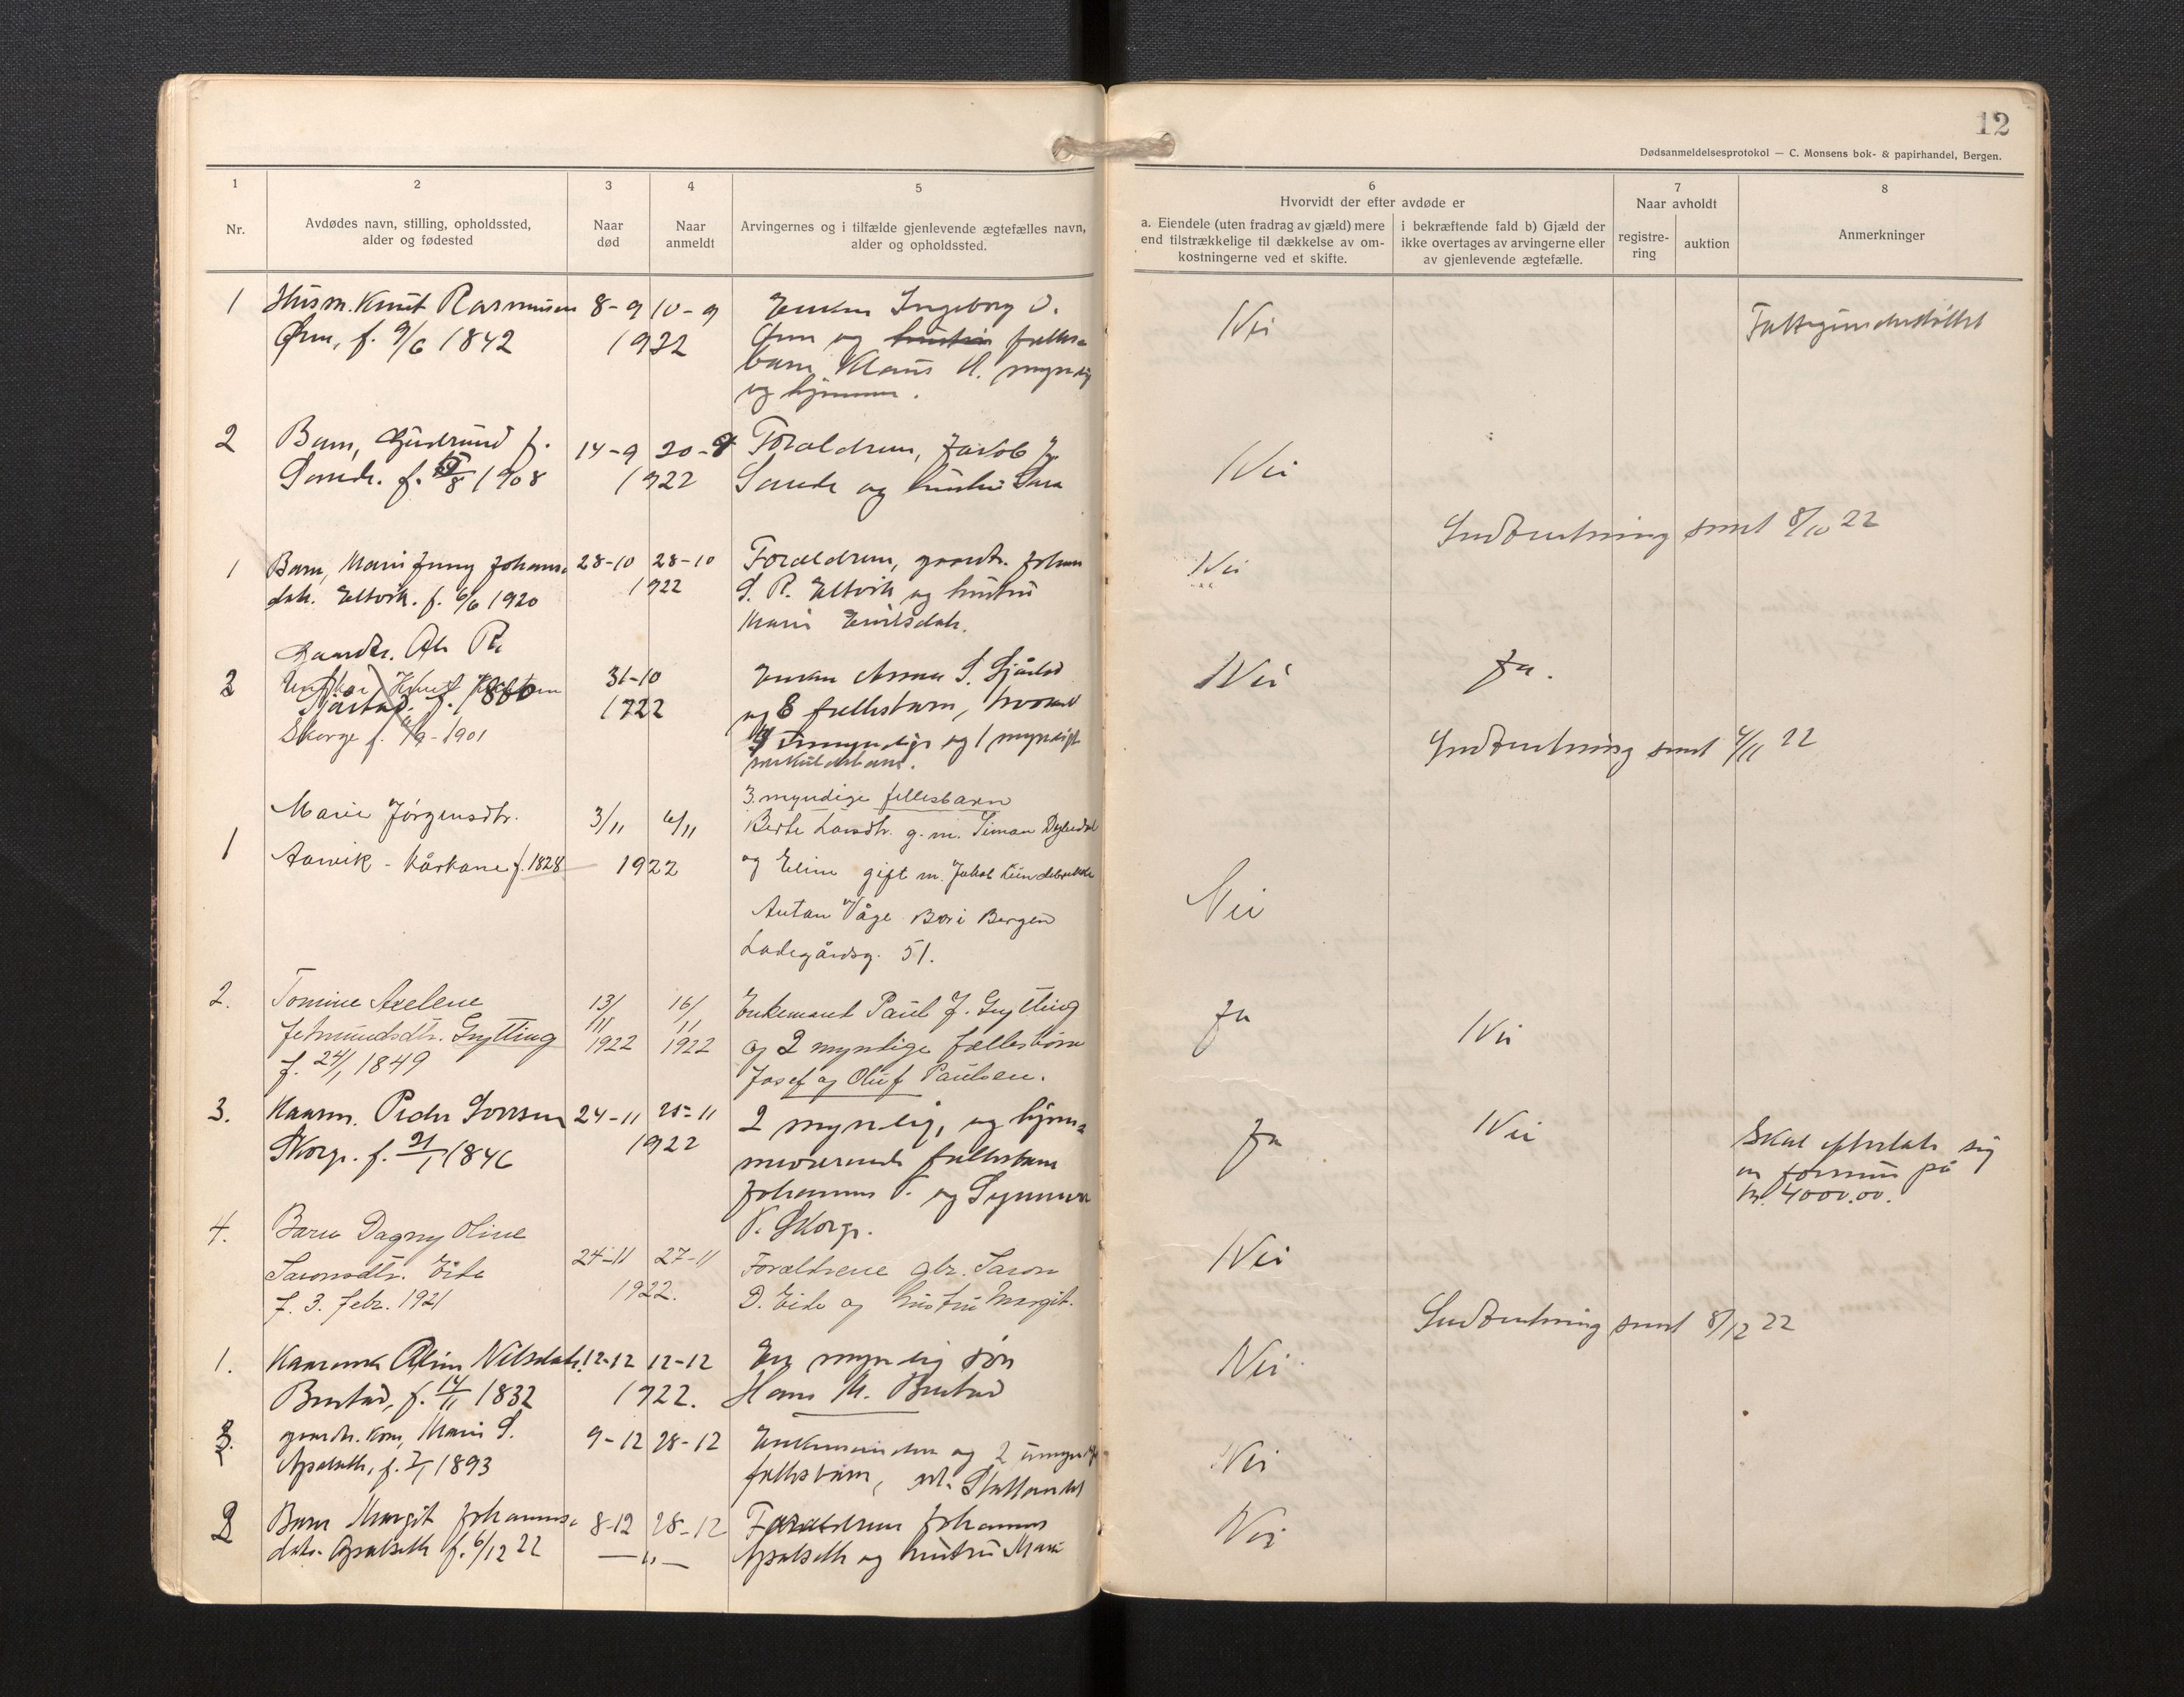 12
Dødsanmeldelsesprotokol — C. Monsens bok- & papirhandel, Bergen.
1 2 3 4 5 6 7 8
Nr.
Avdødes navn, stilling, opholdssted,
alder og fødested
Naar
død
Naar
anmeldt
Arvingernes og i tilfælde gjenlevende ægtefælles navn,
alder og opholdssted.
Hvorvidt der efter avdøde er
a. Eiendele (uten fradrag av gjæld) mere
end tilstrækkelige til dækkelse av om-
kostningerne ved et skifte.
i bekræftende fald b) Gjæld der
ikke overtages av arvingerne eller
av gjenlevende ægtefælle.
Naar avholdt
registre-
ring
auktion
Anmerkninger
1 Husm. Knut Rasmussen 8-9 10-9 Enken Ingeborg O. Nei
f. 9/6 1842 1922 og fælles-
barn Klaus
og hjemme.
2 Barn, Gudrund J. 14-9 20-9 Forældrene, Jakob J. Nei
Sande. f. /8 1908 1922 Sande og hustru
sent 8/10 22
1 Barn, Marie Jenny Johans- 28-10 28-10 Forældrene, gaardbr. Johan Nei
datr. Eltvik. f. 6/6 1920 1922 S. R. Eltvik og hustru
Marie
Gaardbr.
2 31-10 Enken Anna S. Nei Ja.
f. 1880 1922 og 8 fællesbarn, hvorav
Skorge f. /9-1901 umyndige og 1 myndigt
særkuldsbarn.
sent 4/11 22
3 myndige fellesbarn
1 Marie Jörgensdtr. 3/11 6/11 Berte Larsdtr. g. m. Simon
Aarvik - Kårkone f. 1828 1922 og Eline gift m. Jakob Nei
Antan Våge Bor i Bergen
Ladegårdsg. 51.
2. Tomine Axeline 13/11 1922 16/11 1922 Enkemand Paul J. Grytting Ja Nei
Jetmundsdtr. Grytting og 2 myndige fællesbörn
f. 24/1 1849 Josef og Oluf Paulsen.
3. Kaarm. Peder 24-11 25-11 2 myndig, og hjemme- Ja Nei Skal efterlate sig
Skorge. f. 21/1 1846 1922 mværende fællesbarn en formue på
Johannes P. og Synneva kr. 4000.00.
P. Skorge.
4. Barn Dagny Oline 24-11 27-11 Nei
Saronsdtr. Eide Forældrene gbr. Saron
f. 3. febr. 1921 1922. D. Eide og hustru Margit.
sent 8/12 22
1. Kaarkone Nilsdatr. 12-12 12-12 En myndig søn Nei
Brustad, f. 14/11 1832 1922. Hans M. Brustad
3. gaardbr. kone, Marie S. 9-12 28-12 Enkemanden og 2 umyndige Nei
Apalseth, f. 7/1 1893 fællesbarn, adr. Stattlandet
2 Barn Margit Johannes- 8-12 28-12 Forældrene Johannes Nei
datr. Apalseth f. 6/12 22 —"— Apalseth og hustru Marie